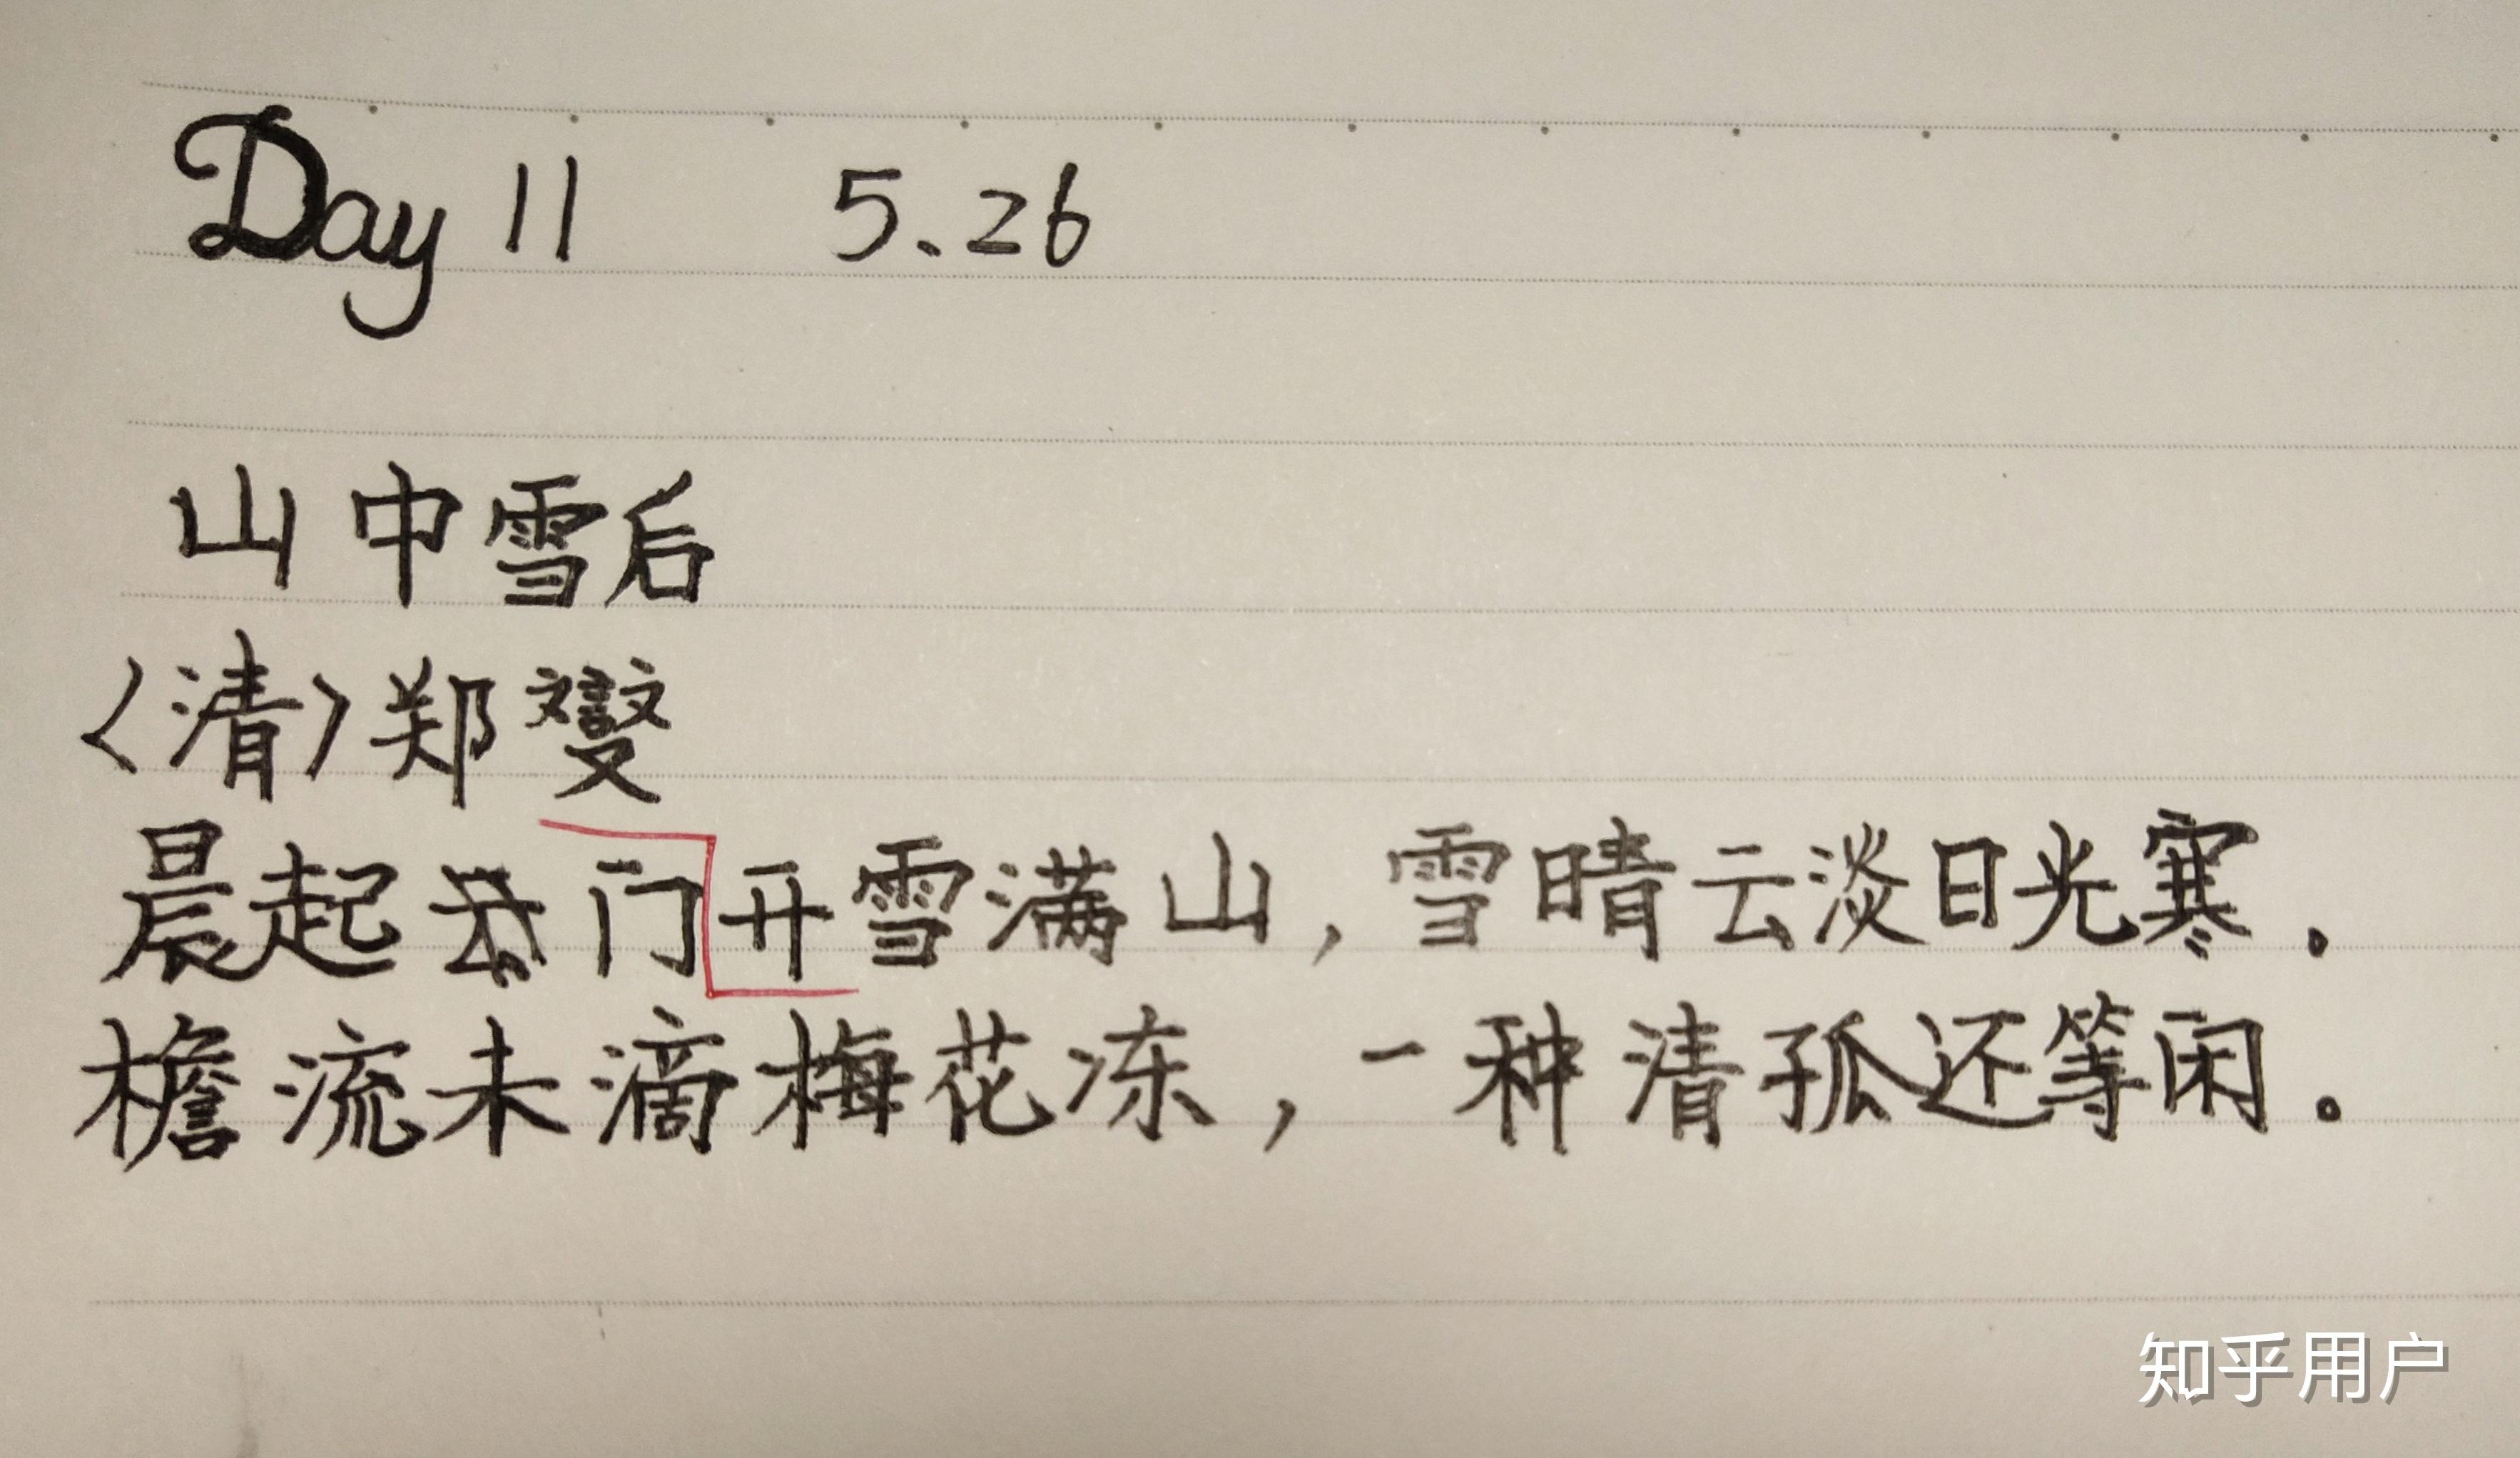 Day 11 5.26
山中雪后
〈清〉郑燮
晨起门开雪满山，雪晴云淡日光寒.
檐流未滴梅花冻，一种清孤还等闲。
知乎用户